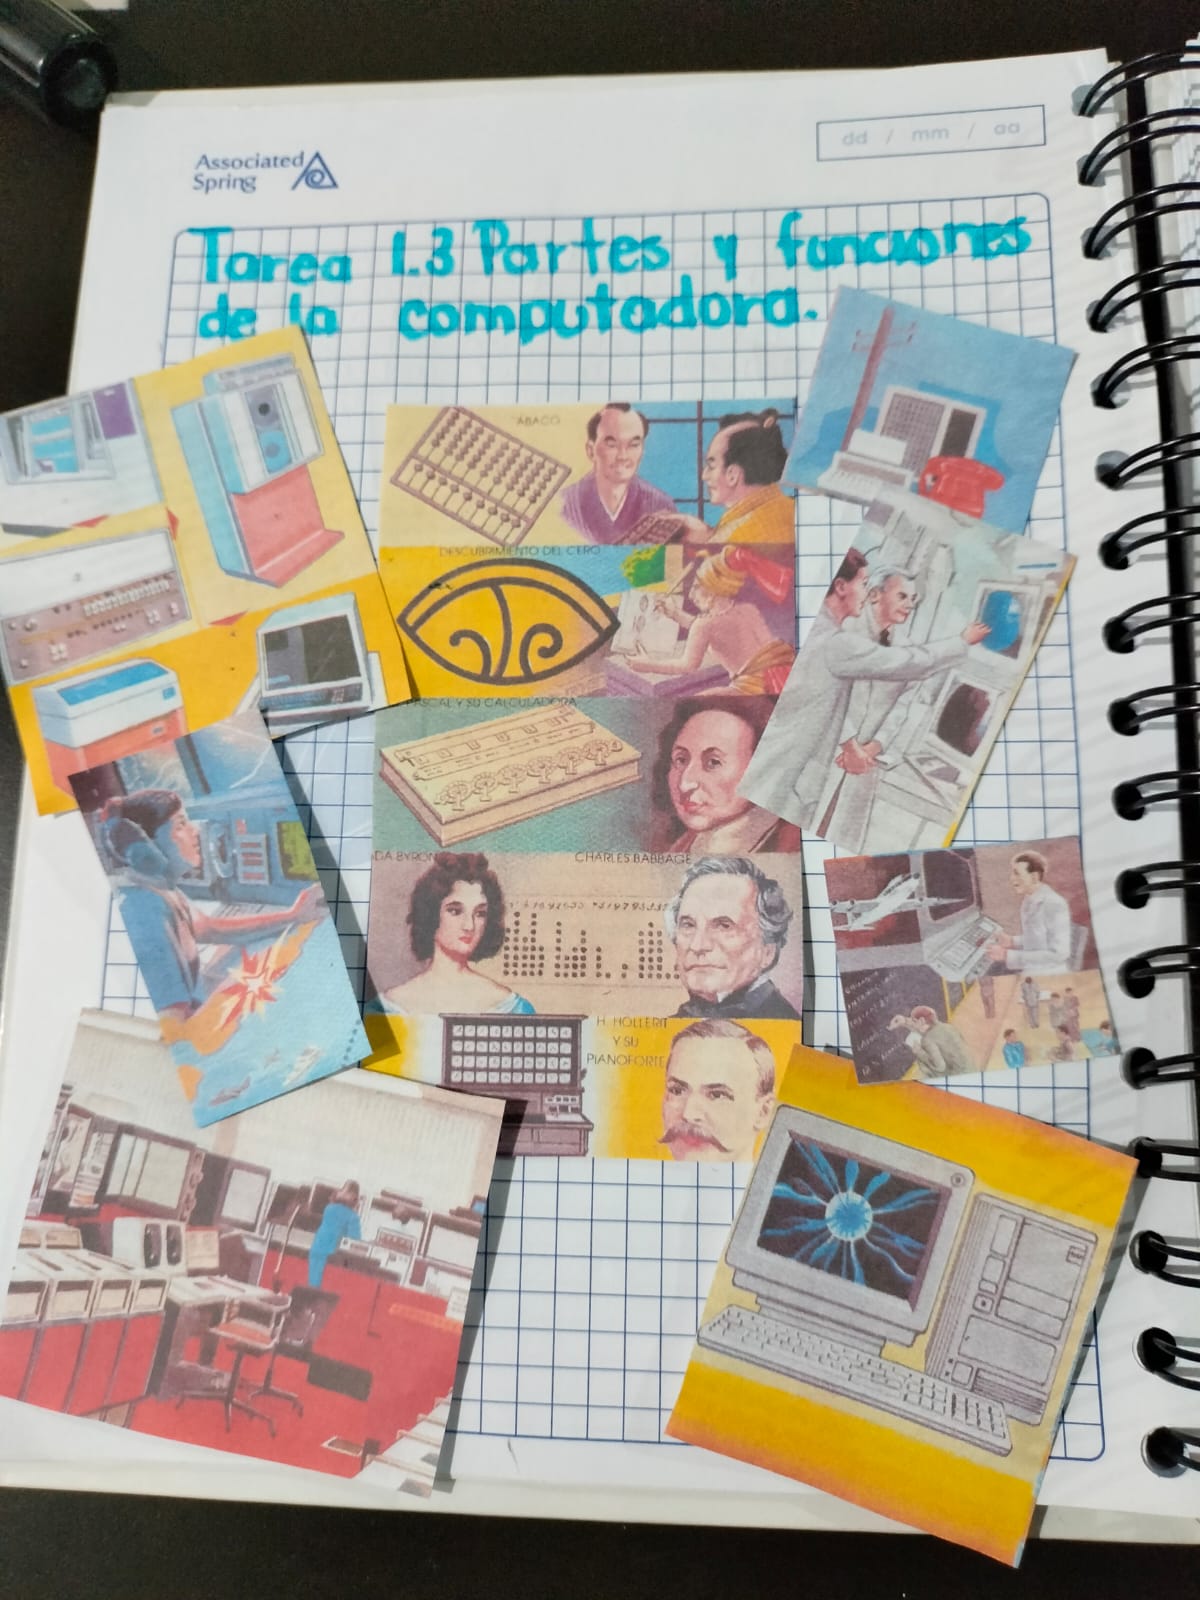 Associated
Spring
dd / mm / aa
Tarea 1.3 Partes y funciones
de la computadora.
ABACO
DESCUBRIMIENTO DEL CERO
PASCAL Y SU CALCULADORA
DA BYRON
CHARLES BABBAGE
H. HOLLERIT
Y SU
PIANOFORTE